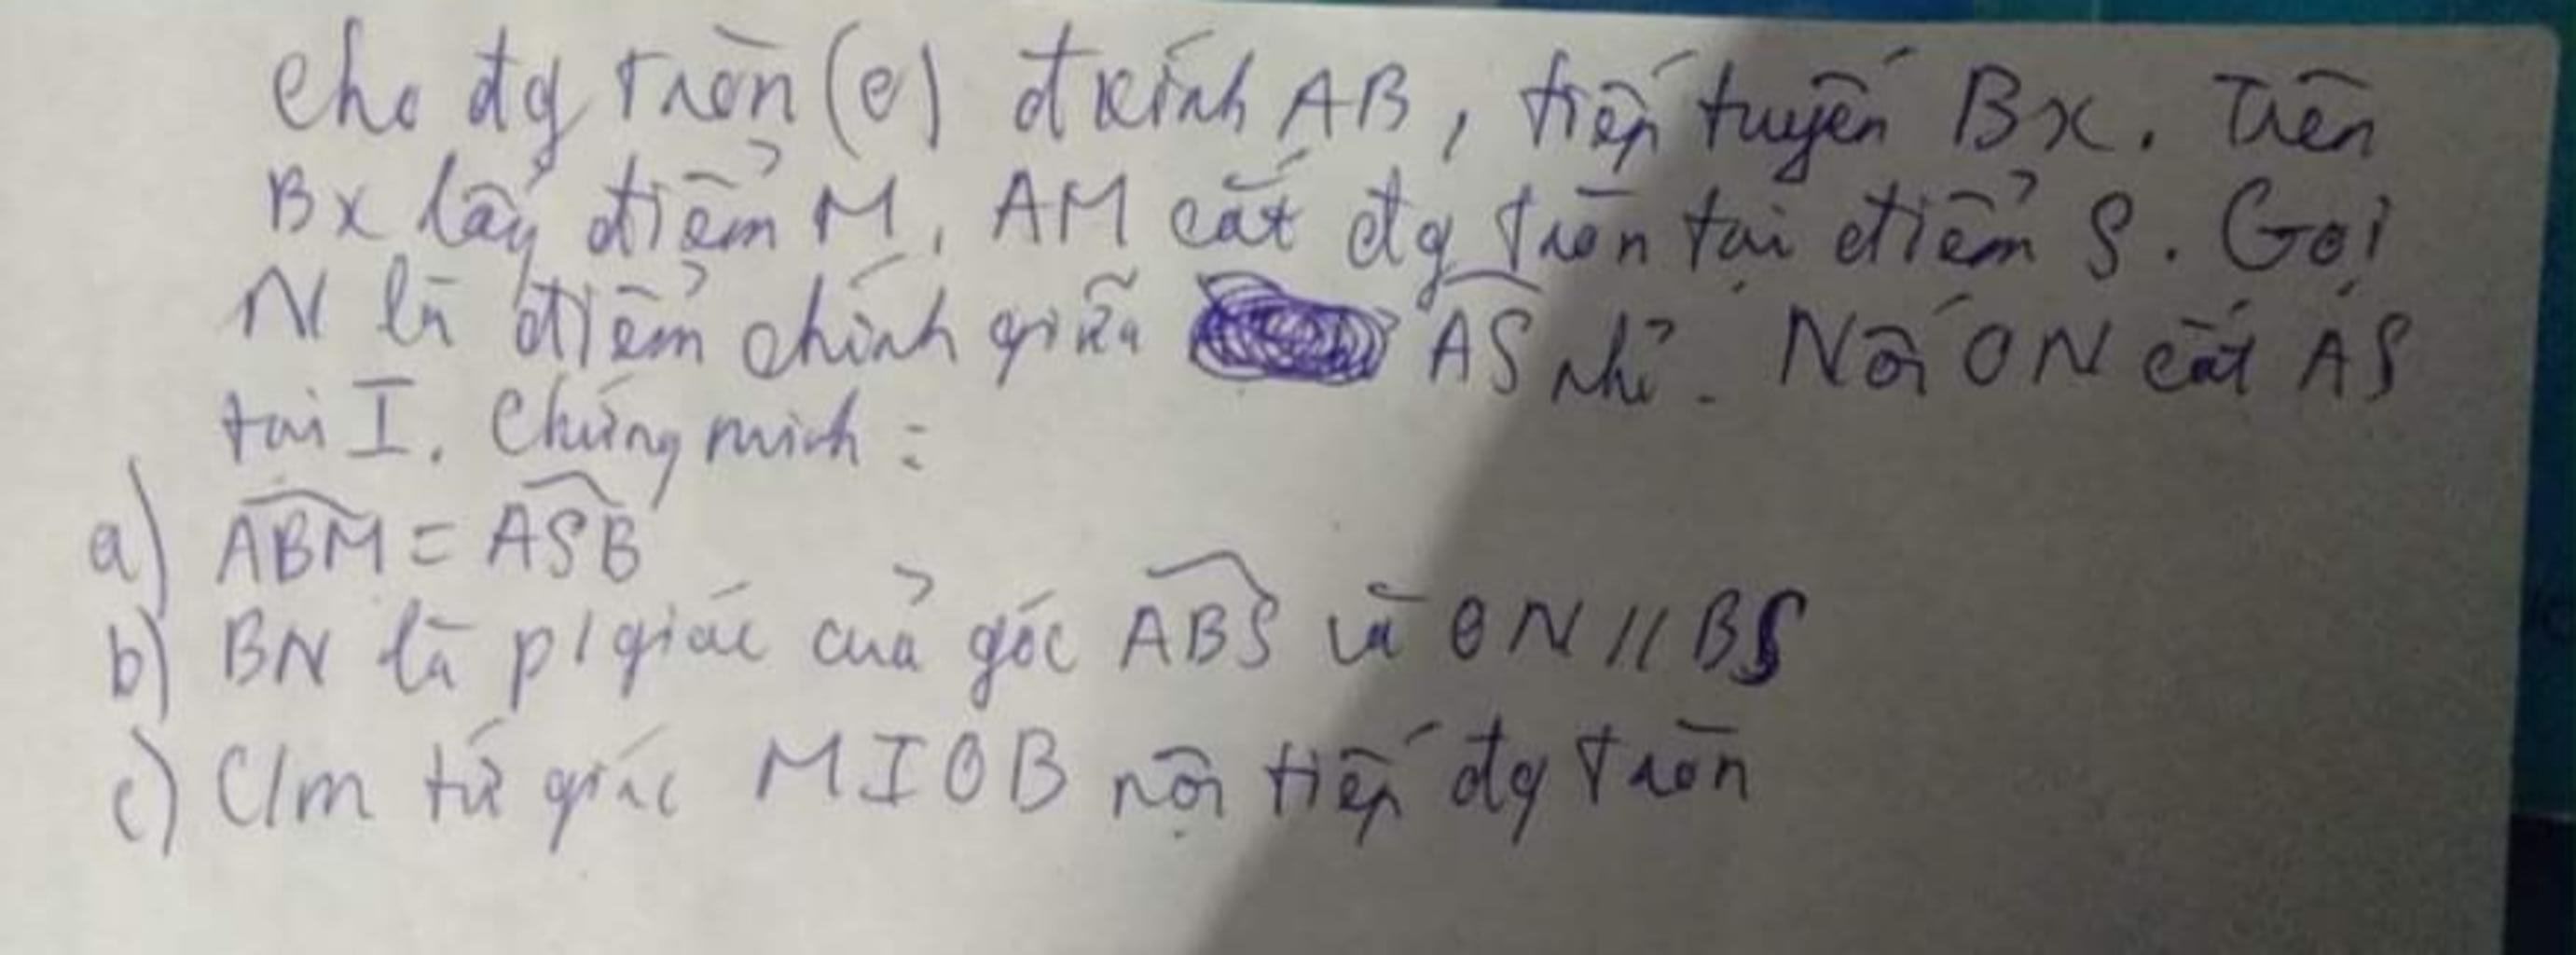 Cho đg tròn (O) đkính AB, tiếp tuyến Bx. Trên
Bx lấy điểm M, AM cắt đg tròn tại điểm S. Gọi
N là điểm chính giữa AS nhỏ. Nối ON cắt AS
tại I. Chứng minh:
a) ABM = ASB
b) BN là p/giác của góc ABS và ON // BS
c) C/m tứ giác MIOB nội tiếp đg tròn